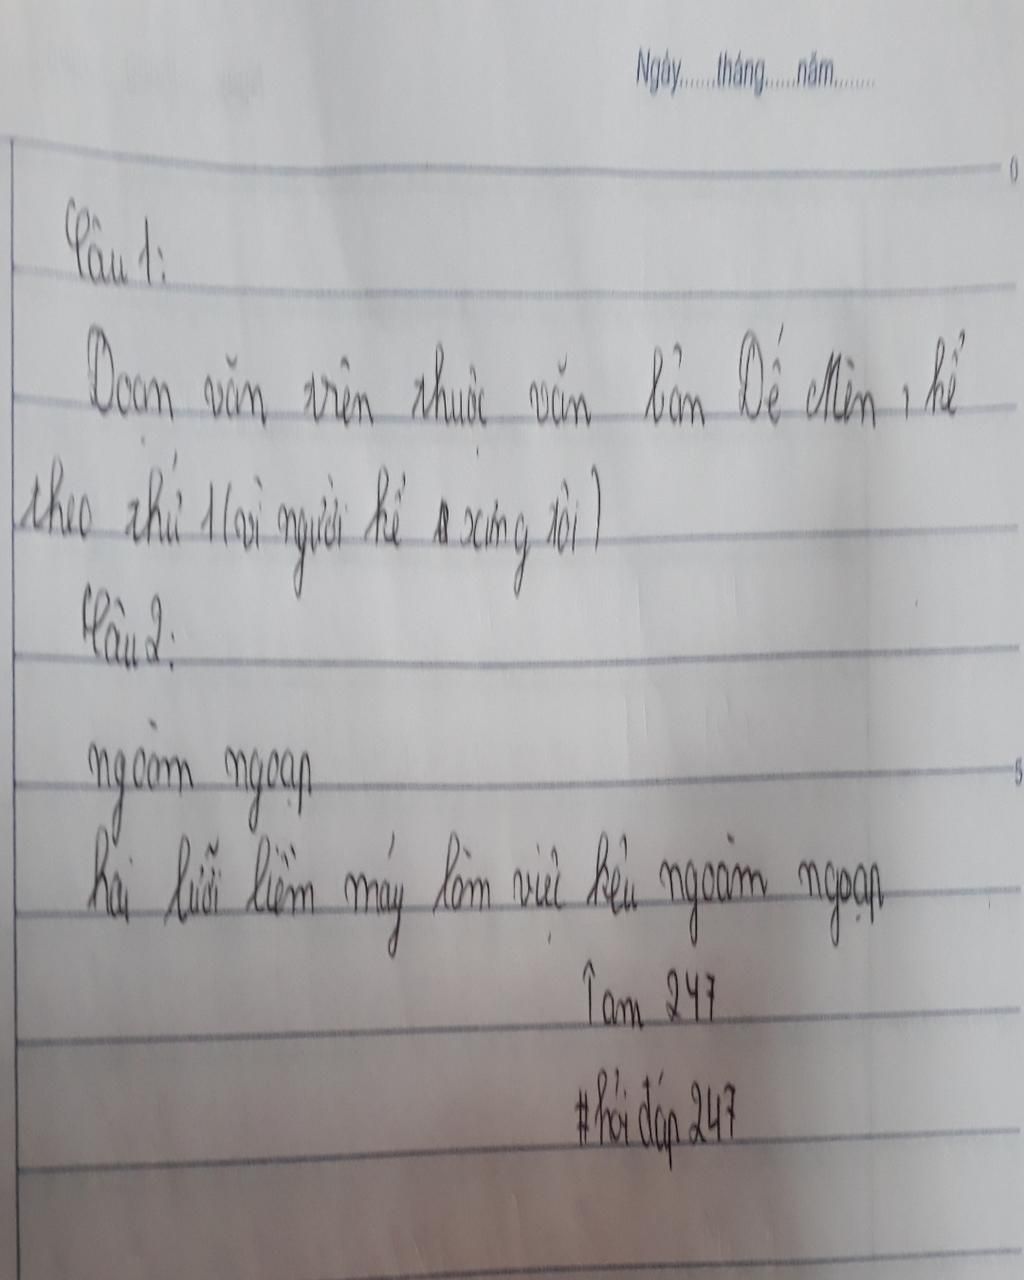 Ngày......tháng.....năm.......
0
Câu 1:
Đoạn văn trên thuộc văn bản Dế Mèn, kể
theo thứ 1(vì người kể xưng tôi)
Câu 2:
ngoàm ngoạp
5
hai lưỡi liềm máy làm việc kêu ngoàm ngoạp
Tam 247
#hỏi đáp 247